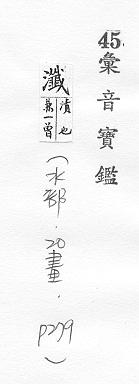 45.彙音寶鑑
瀸
漬也
兼一曾
(水部．20畫．P279)